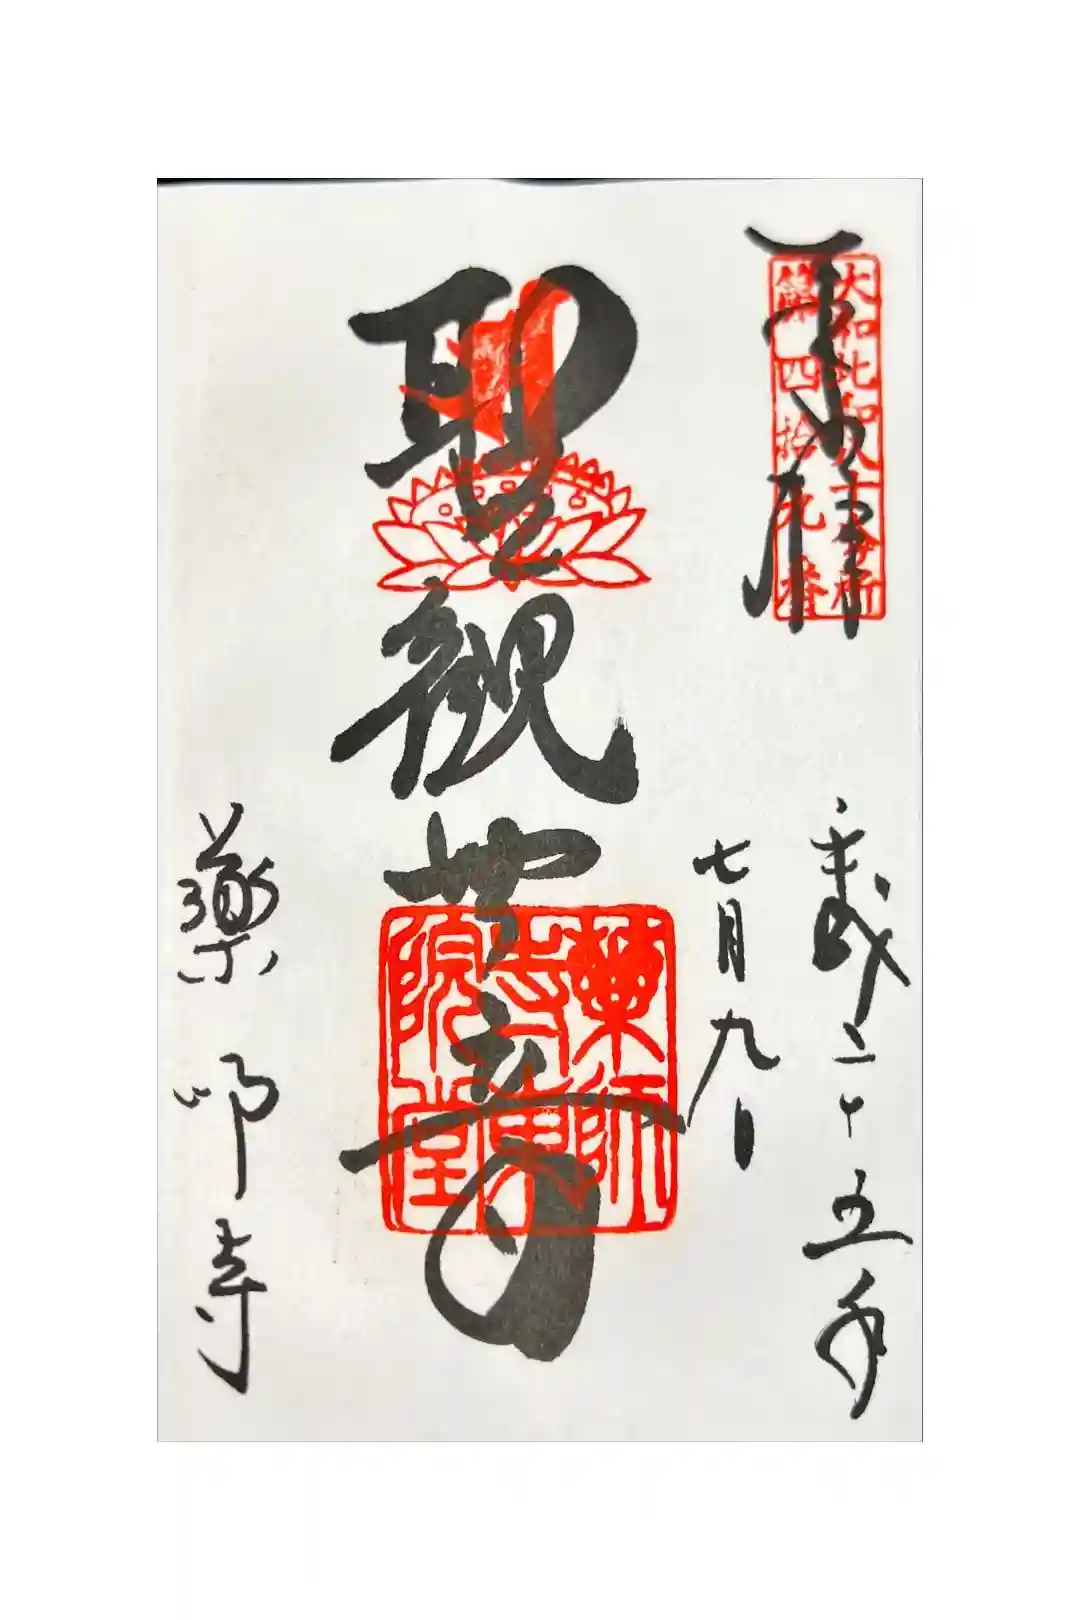 奉拝
大和北部八十八ヶ所
第四拾九番
平成二十五年
七月九日
聖観世音
薬師
寺東
院堂
薬師寺